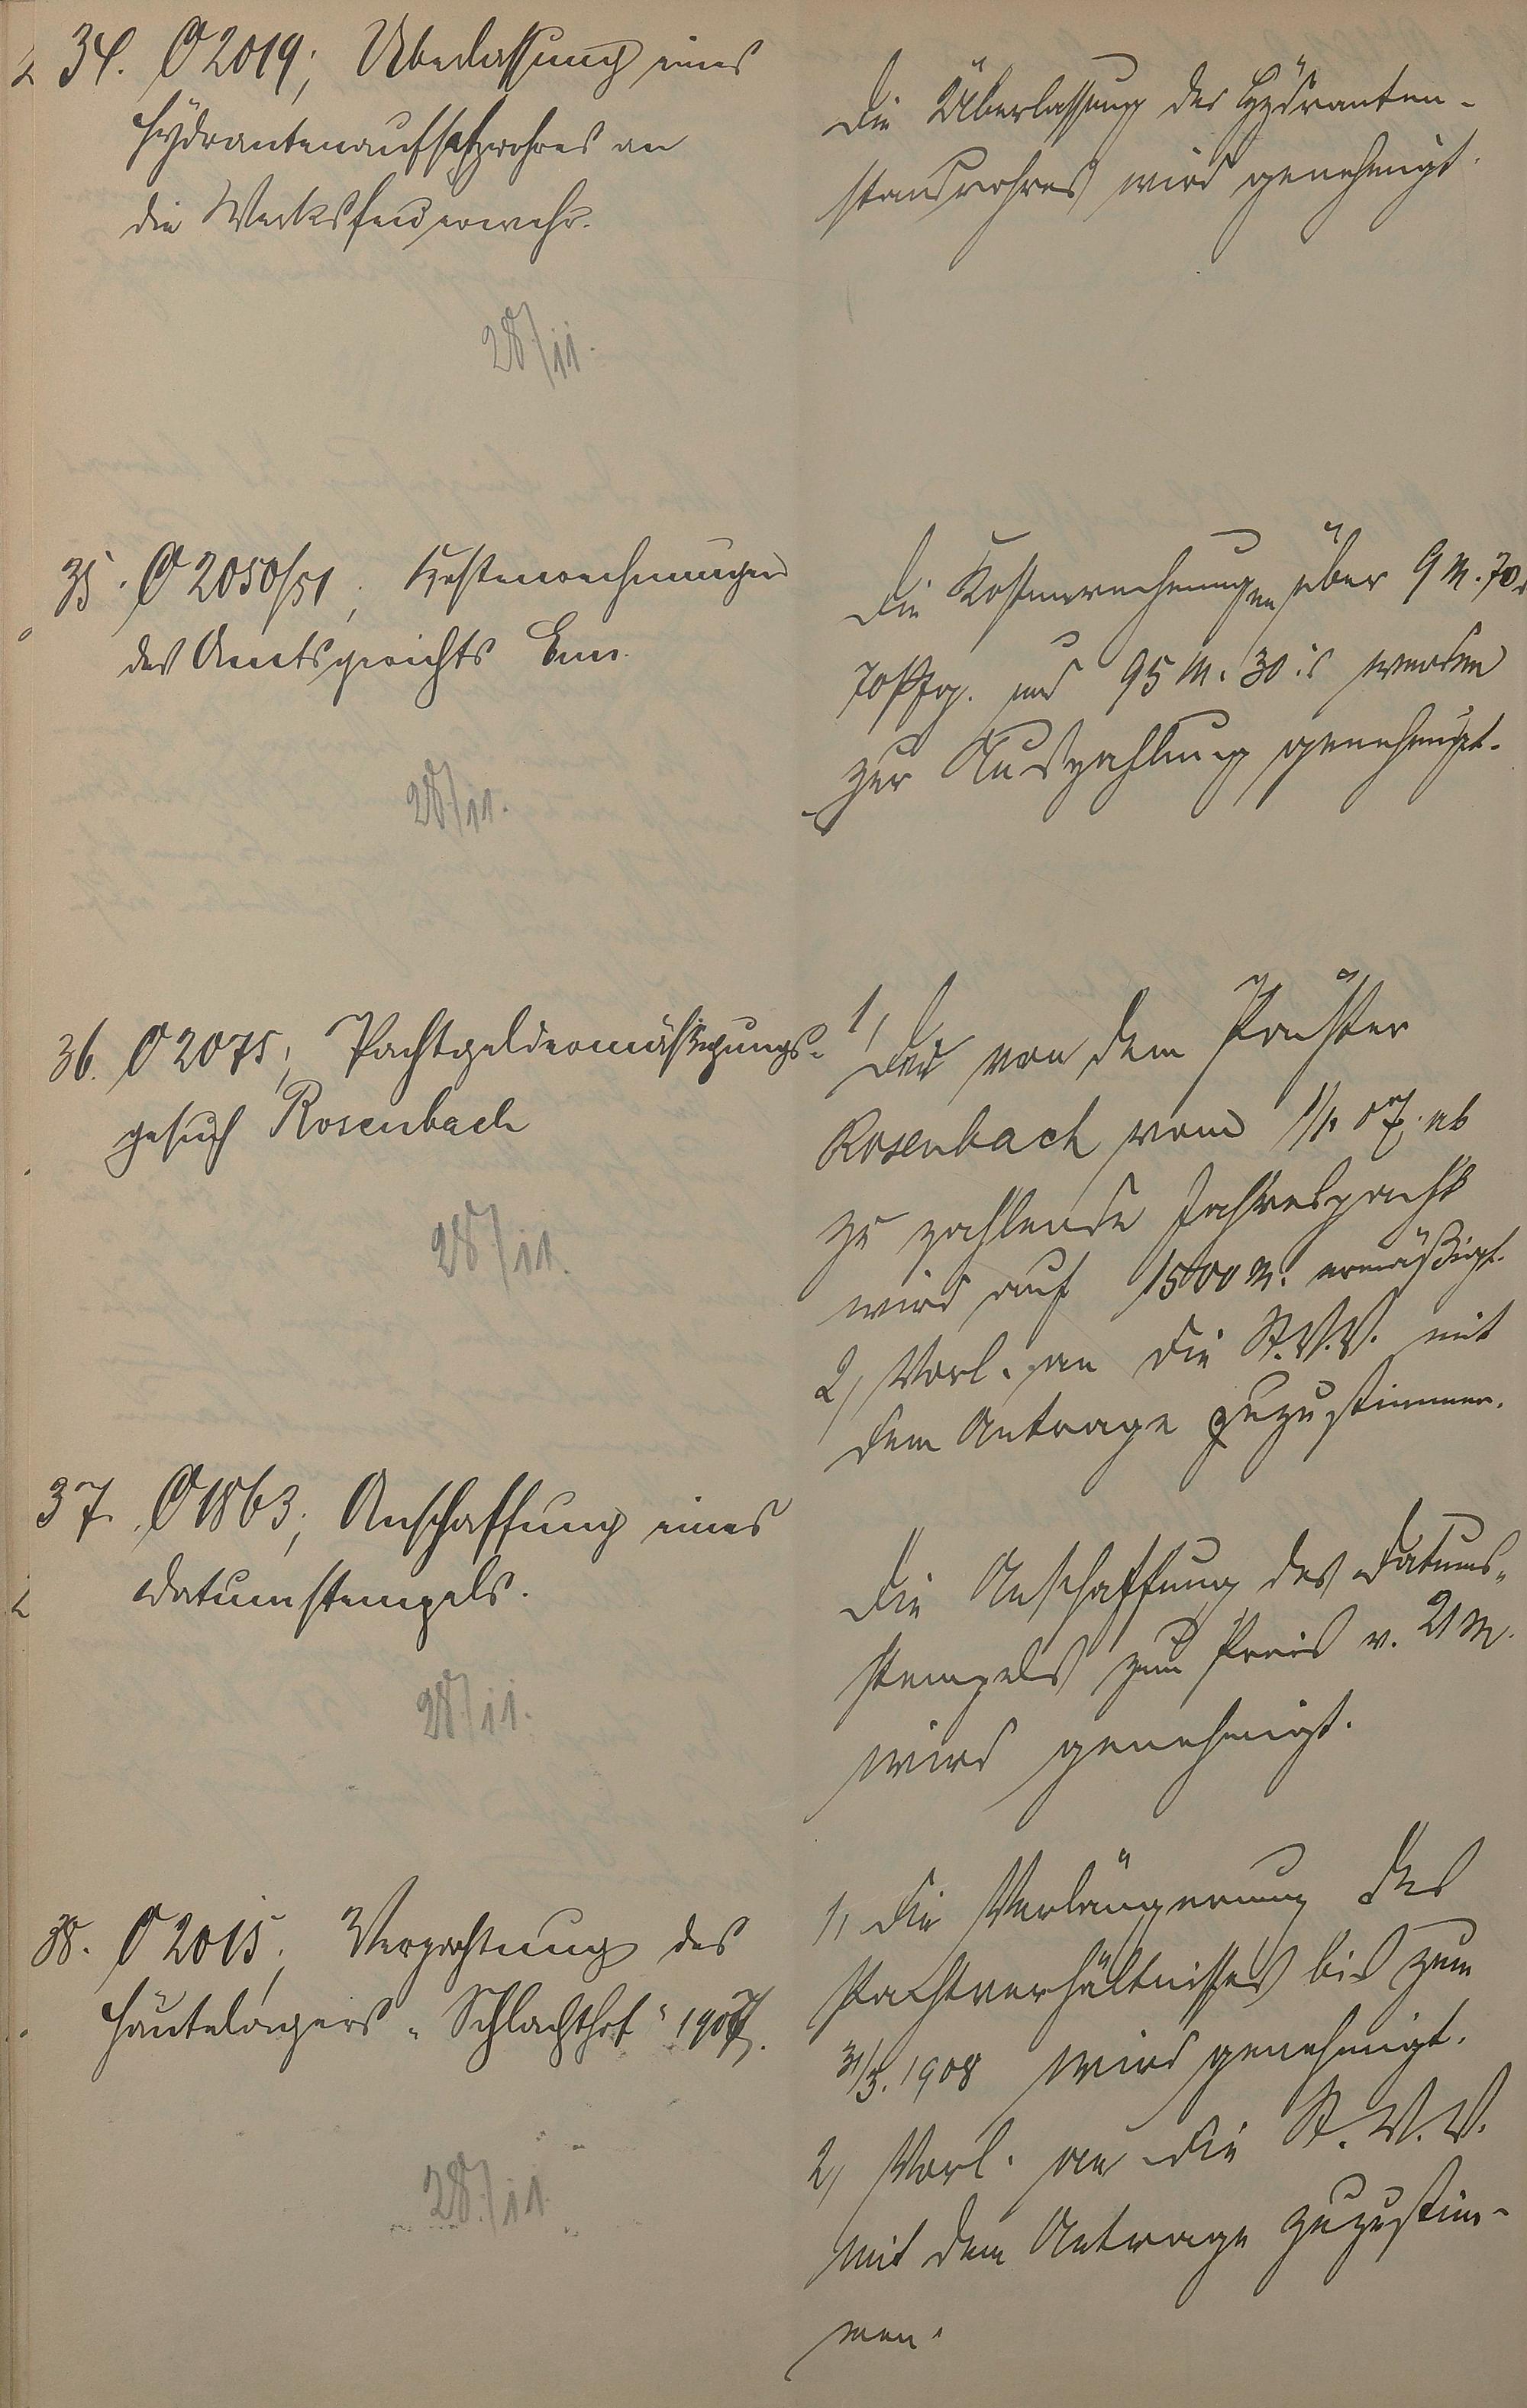 34. O 2019; Überlassung eines
Hydrantenaufsatzrohres an
die Werksfeuerwehr.
28/11.
Die Überlassung des Hydranten-
standrohres wird genehmigt.
35. O 2050/51; Kostenrechnungen
des Amtsgerichts Ems.
28/11.
Die Kostenrechnungen über 9 M. 70
70 Pfg. und 95 M. 30 werden
zur Auszahlung genehmigt.
36. O 2075; Pachtgeldermässigungs-
gesuch Rosenbach
28/11.
1, Die von dem Pächter
Rosenbach vom 1/1. 07. ab
zu zahlende Jahrespacht
wird auf 1500 M. ermäßigt.
2, Vorl. an die St.V.V. mit
dem Antrage zuzustimmen.
37. O 1863; Anschaffung eines
Datumstempels.
28/11.
Die Anschaffung des Datums-
stempels zum Preis v. 21 M.
wird genehmigt.
38. O 2015; Verpachtung des
Häutelagers "Schlachthof" 1907.
28/11
1, Die Verlängerung des
Pachtverhältnisses bis zum
31/3. 1908 wird genehmigt.
2, Vorl. an die St. V. V.
mit dem Antrage zuzustim-
men.